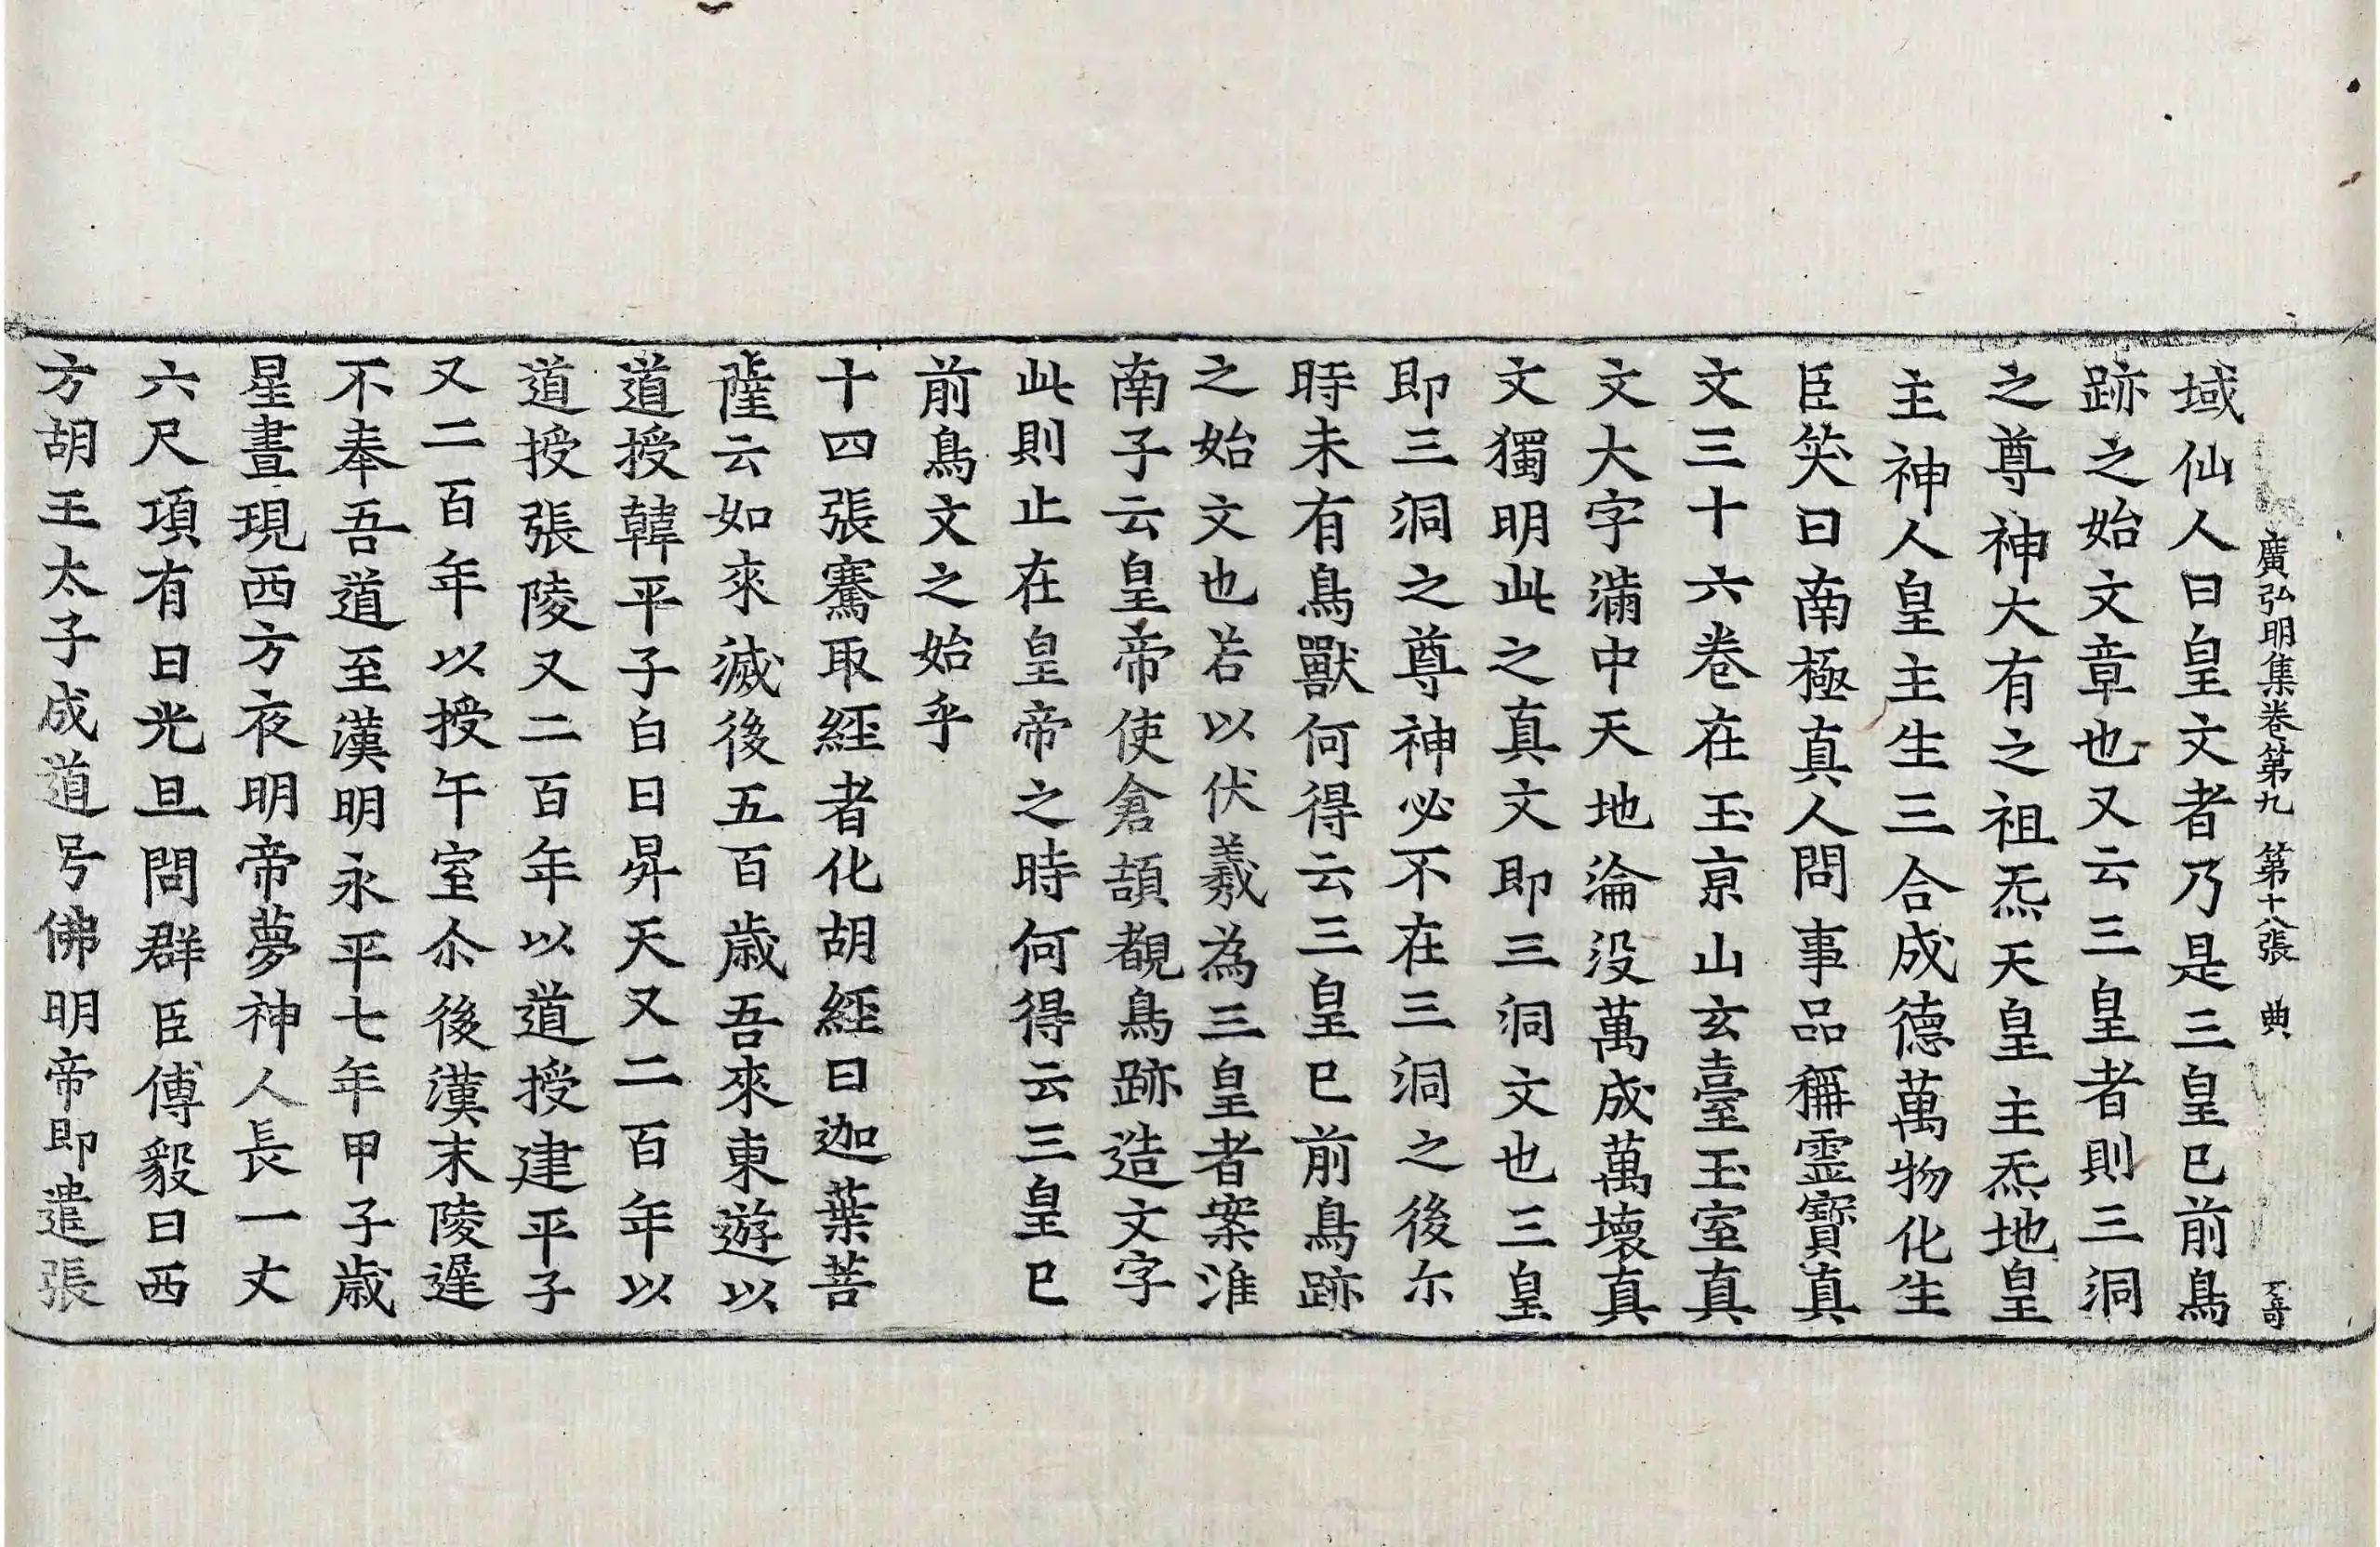 廣弘明集卷第九　第十八張　典
域仙人曰皇文者乃是三皇已前鳥
跡之始文章也又云三皇者則三洞
之尊神大有之祖炁天皇主炁地皇
主神人皇主生三合成德萬物化生
臣笑曰南極真人問事品稱靈寶真
文三十六卷在玉京山玄臺玉室真
文大字滿中天地淪没萬成萬壞真
文獨明此之真文即三洞文也三皇
即三洞之尊神必不在三洞之後尓
時未有鳥獸何得云三皇已前鳥跡
之始文也若以伏羲為三皇者案淮
南子云皇帝使倉頡覩鳥跡造文字
此則止在皇帝之時何得云三皇已
前鳥文之始乎
十四張騫取經者化胡經曰迦葉菩
薩云如來滅後五百歲吾來東遊以
道授韓平子白日昇天又二百年以
道授張陵又二百年以道授建平子
又二百年以授午室尒後漢末陵遲
不奉吾道至漢明永平七年甲子歲
星晝現西方夜明帝夢神人長一丈
六尺項有日光旦問群臣傅毅曰西
方胡王太子成道号佛明帝即遣張